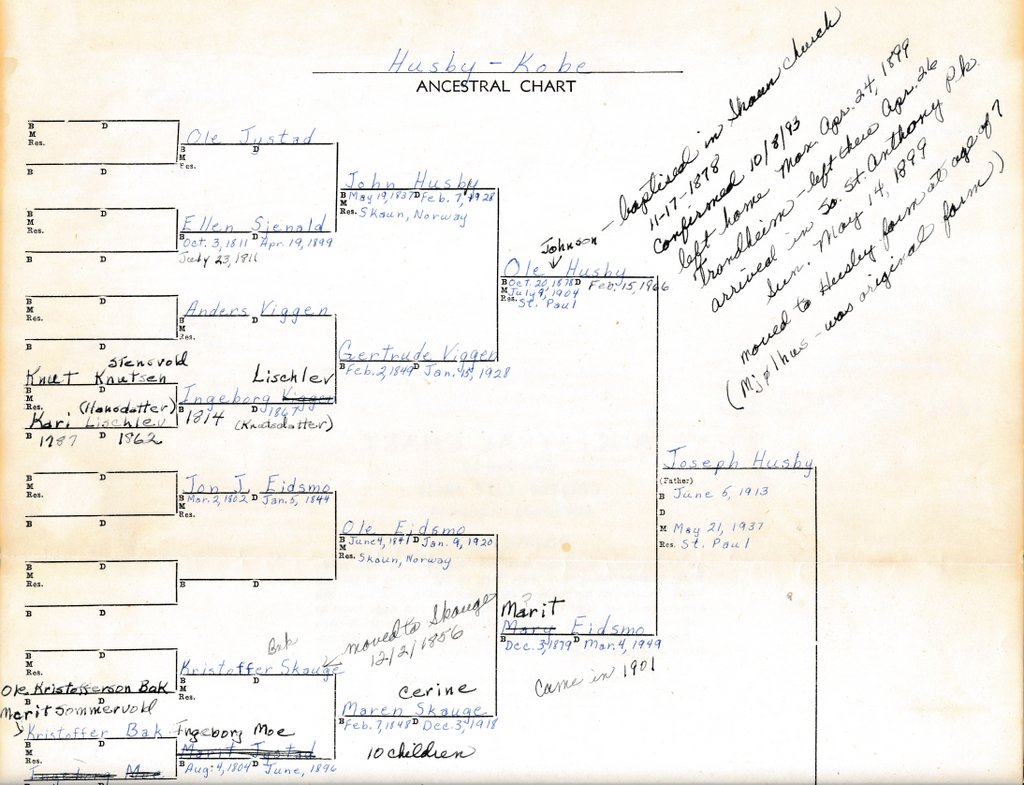 Husby - Kobe
ANCESTRAL CHART
Johnson - baptised in Skaun church
11-17-1878
confirmed 10/8/93
left home Mon. Apr. 24, 1899
Trondheim - left there Apr. 26
arrived in So. St. Anthony Pk.
Sun. May 14, 1899
moved to Husby farm at age of 7
was original farm)
B D
M
Res.
B D
Ole Tystad
B D
M
Res.
B D
M
Res.
B D
Ellen Sjenald
B Oct. 3, 1811 D Apr. 19, 1899
July 23, 1811
John Husby
B May 19, 1837 D Feb. 7, 1928
M
Res. Skaun, Norway
B D
M
Res.
B D
Anders Viggen
B D
M
Res.
Stensvold
Knut Knutsen
B D
M
Res. (Hansdatter)
Kari Lischlev
B 1787 D 1862
Lischlev
Ingeborg Viggen
B 1814 D 1867
(Knutsdatter)
Gertrude Viggen
B Feb. 2, 1849 D Jan. 15, 1928
Ole Husby
B Oct. 20, 1878 D Feb. 15, 1966
M July 9, 1904
Res. St. Paul
B D
M
Res.
B D
Jon J. Eidsmo
B Mar. 2, 1802 D Jan. 5, 1844
M
Res.
B D
M
Res.
B D
B D
Ole Eidsmo
B June 4, 1841 D Jan. 9, 1920
M
Res. Skaun, Norway
B D
M
Res.
Ole Kristofferson Bak
B D
Marit Sommervold
Bak
Kristoffer Skauge
B D
M
Res.
moved to Skauge
12/2/1856
Kristoffer Bak
B D
M
Res.
Ingeborg Moe
Ingeborg Moe
Marit Tystad
B Aug. 4, 1804 D June, 1896
Cerine
Maren Skauge
B Feb. 7, 1848 D Dec. 3, 1918
10 children
?
Marit
Mary Eidsmo
B Dec. 3, 1879 D Mar. 4, 1949
Came in 1901
Joseph Husby
(Father)
B June 5, 1913
D
M May 21, 1937
Res. St. Paul